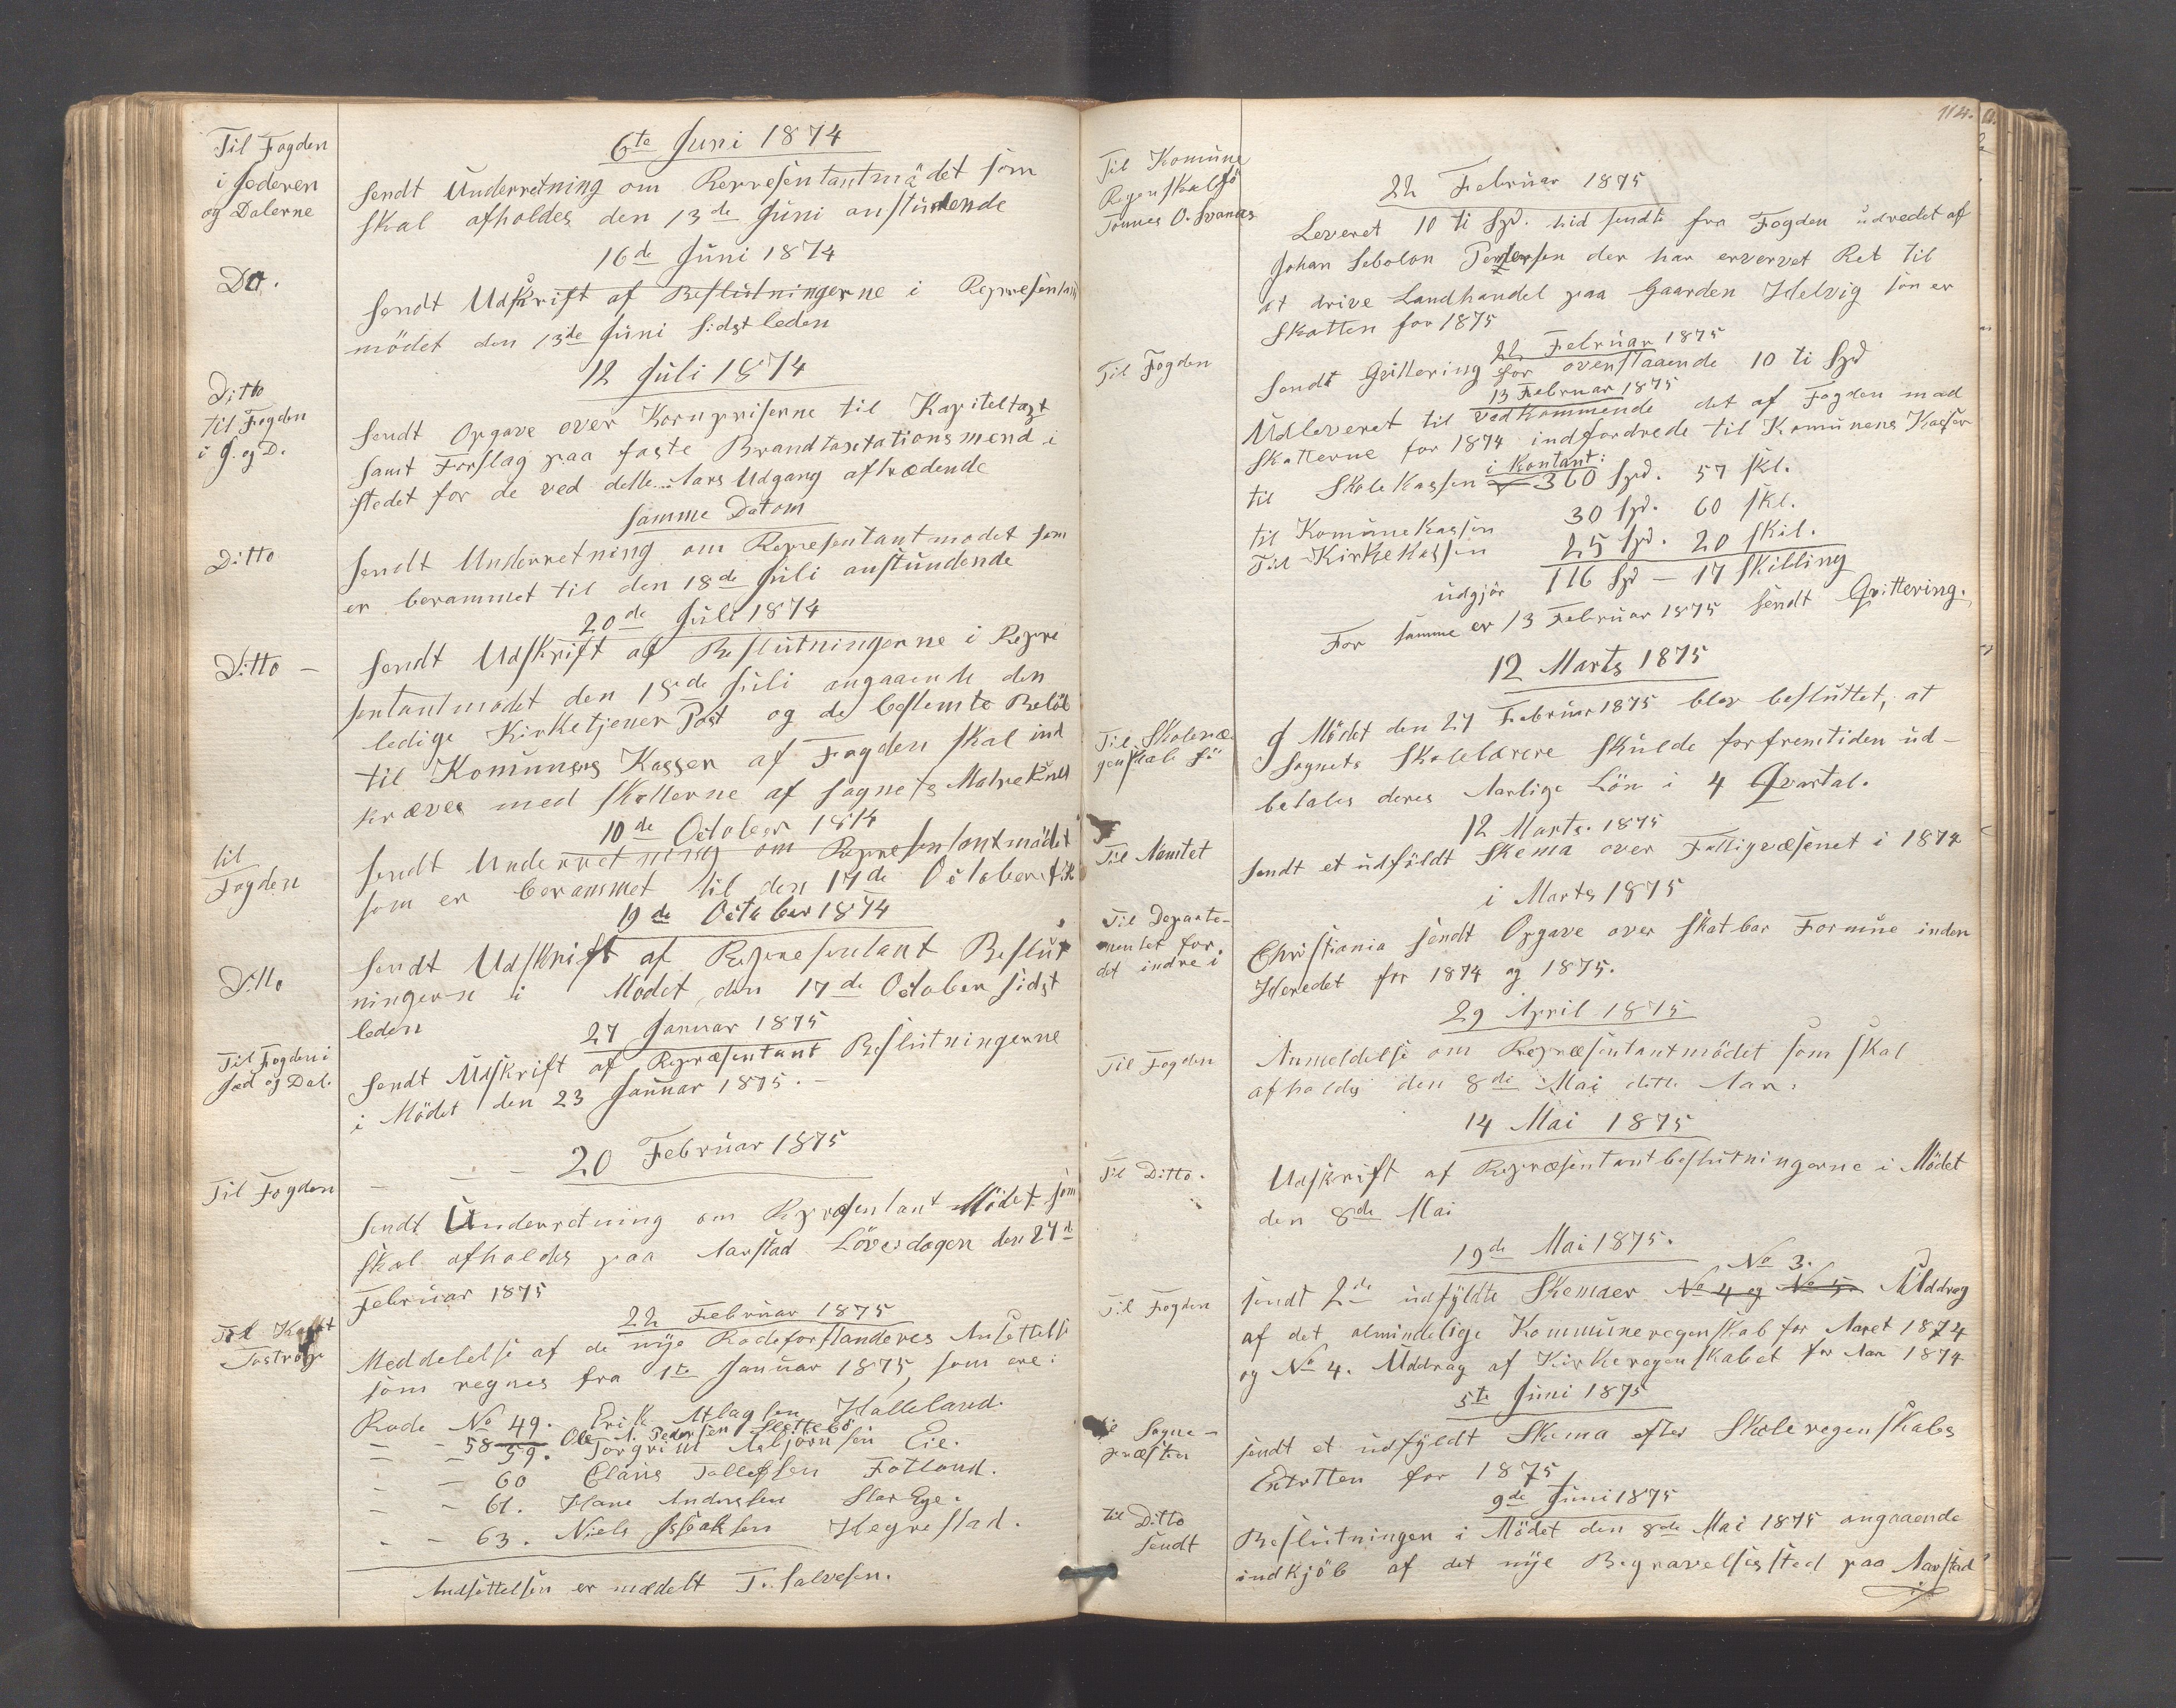 Til Fogden
i Jederen
og Dalerne
6te Juni 1874
Sendt Underretning om Representantmødet som
skal afholdes den 13de Juni anstundende
16de Juni 1874
Do.
Sendt Udskrift af Beslutningerne i Represent
mödet den 13de Juni sidstleden
12 Juli 1874
Ditto
til Fogden
i J. og D.
Sendt Opgave over Kornpriserne til Kapiteltaxt
samt Forslag paa faste Brandtaxtationsmend i
stedet for de ved dette Aars Udgang aftrædende
Samme Datom
Ditto
Sendt Underretning om Representantmødet som
er berammet til den 18de Juli anstundende
20de Juli 1874
Ditto –
Sendt Udskrift af Beslutningerne i Repre
sentantmødet den 18de Juli angaaende den
ledige Kirketjener Post og de bestemte Belöb
til Komunens Kasser af Fogden skal ind
kræves med Skatterne af Sognets
10de October 1874
til
Fogden
Sendt Underretning om Representantmödet
som er berammet til den 17de October
19de October 1874
Ditto
Sendt Udskrift af Representant Beslut
ningerne i Mödet den 17de October sidst
leden
27 Januar 1875
Til Fogden i
Jæd og Dal.
Sendt Udskrift af Repræsentant Beslutningerne
i Mödet den 23 Januar 1875. –
20 Februar 1875
Til Fogden
Sendt Underretning om Repræsentant Mödet som
skal afholdes paa Aarstad Löverdagen den 27de
Februar 1875
22 Februar 1875
Til
Meddelelse af de nye Rodeforstanderes Ansettelse
som regnes fra 1te Januar 1875, som ere:
Rode No 49. Erik Atlagsen Halleland.
– – 58 Ole A. Pedersen Slettebö
– – 59. Torgrim Asbjörnsen Eie.
– – 60 Claus Tollefsen Fotland.
– – 61. Hans Andersen Stor Eye.
– – 63. Niels Isaksen Hegrestad.
Andsettelsen er mældelt T. Salvesen.
114.
Til Komune
Regenskabsfö
Tönnes O. Svanes
22 Februar 1875
Leveret 10 ti Spd. hid sendte fra Fogden udredet af
Johan Sebolon Pedersen der har ervervet Ret til
at drive Landhandel paa Gaarden Helvig son er
Skatten for 1875
22 Februar 1875
Til Fogden
Sendt Qvittering for ovenstaaende 10 ti Spd
13 Februar 1875
Udleveret til vedkommende det af Fogden mad
Skatterne for 1874 indfordrede til Komunens Kasser
i Kontant:
til Skolekassen 360 Spd. 57 skl.
til Komunekassen 30 Spd. 60 skl.
Til Kirkekassen 25 Spd. 20 skil.
udgjör 116 Spd – 17 Skilling
For samme er 13 Februar 1875 sendt Qvittering.
12 Marts 1875
Til Skolere
genskabs fö
I Mödet den 27 Februar 1875 blev besluttet, at
Sognets Skolelærere skulde forfremtiden ud-
betales deres Aarlige Lön i 4 Qvartal.
12 Marts. 1875
Til Amtet
Sendt et udfyldt Skema over Fattigvæsenet i 1874
i Marts 1875
Til Departe-
mentet for
det indre i
Christiania sendt Opgave over skatbar Formue inden
Heredet for 1874 og 1875.
29 April 1875
Til Fogden
Anmeldelse om Repræsentantmödet som skal
afholdes den 8de Mai dette Aar.
14 Mai 1875
Til Ditto.
Udskrift af Repræsentantbeslutningerne i Mödet
den 8de Mai
19de Mai 1875.
No 3.
Til Fogden
Sendt 2de udfyldte Skemaer No 4 og No 5. Uddrag
af det almindelige Kommuneregenskab for Aaret 1874
og No 4. Uddrag af Kirkeregenskabet for Aar 1874
5te Juni 1875
Til Sogne-
præsten
Sendt et udfyldt Skema efter Skoleregenskabs
Extrtten for 1875
9de Juni 1875
til Ditto
Sendt
Beslutningen i Mödet den 8de Mai 1875 angaaende
indkjöb af det nye Begravelsessted paa Aarstad